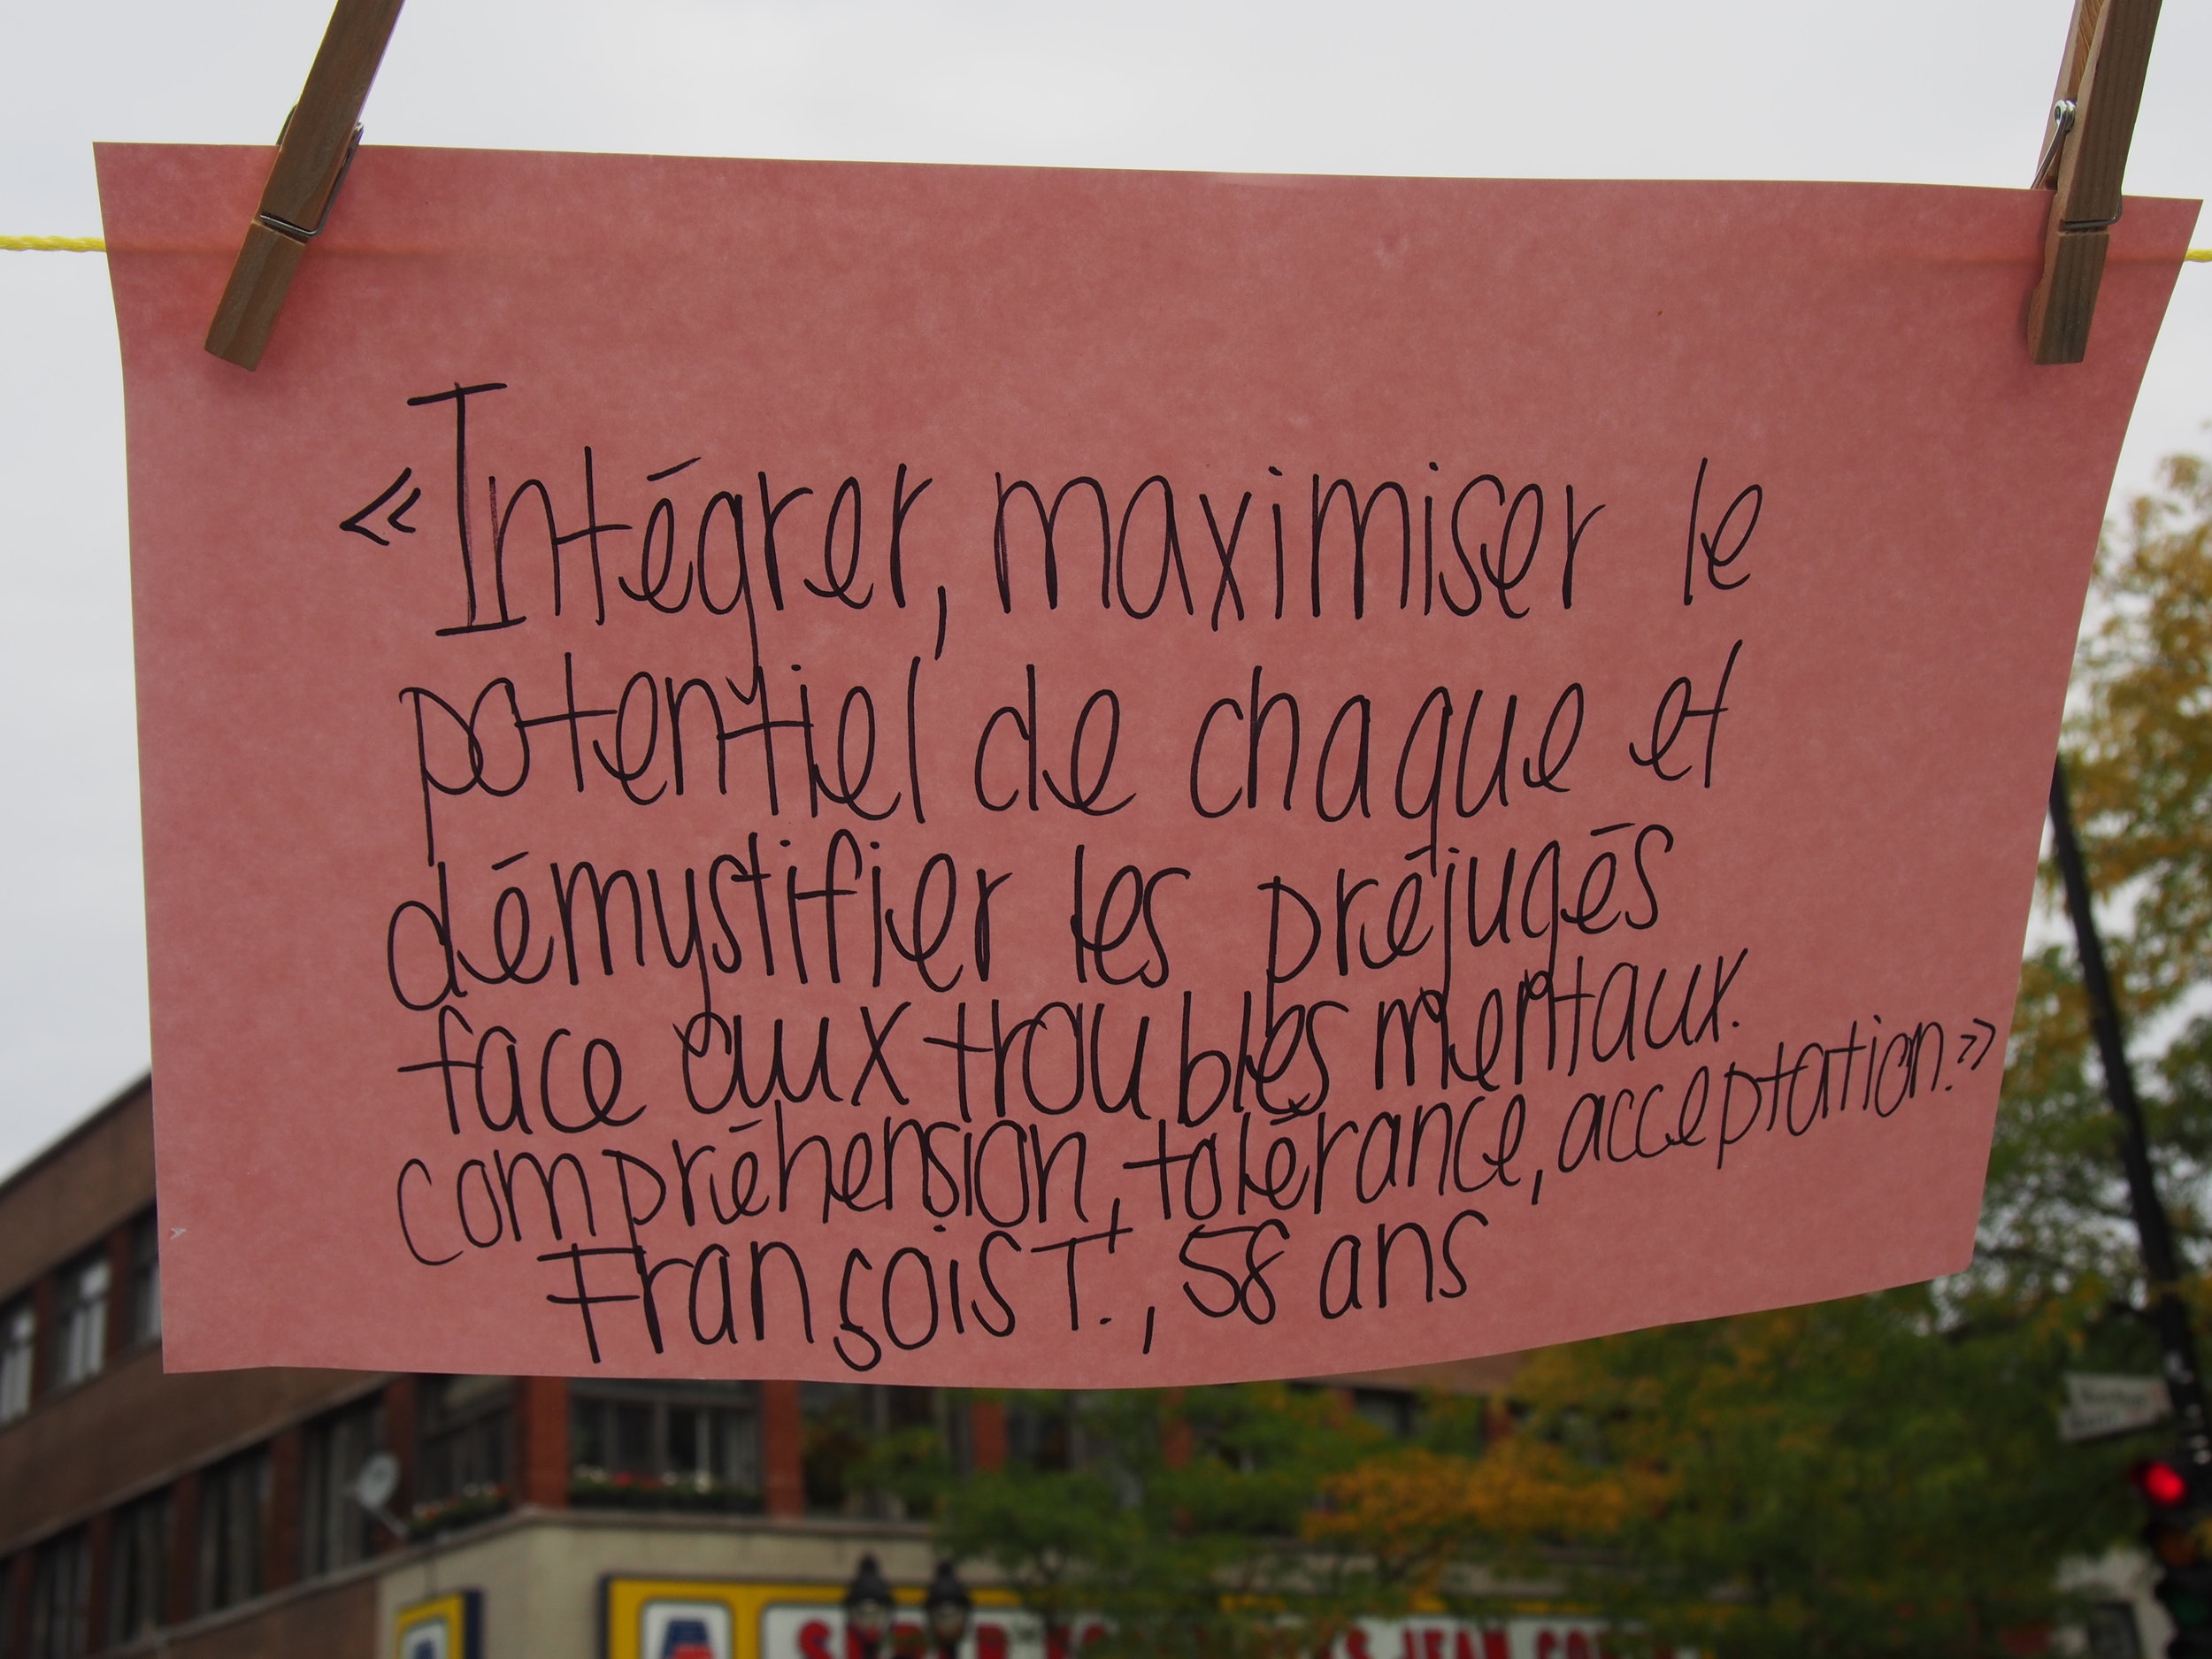 «Intégrer, maximiser le
potentiel de chaque et
démystifier les préjugés
face aux troubles mentaux.
compréhension, tolérance, acceptation.»
François T., 58 ans